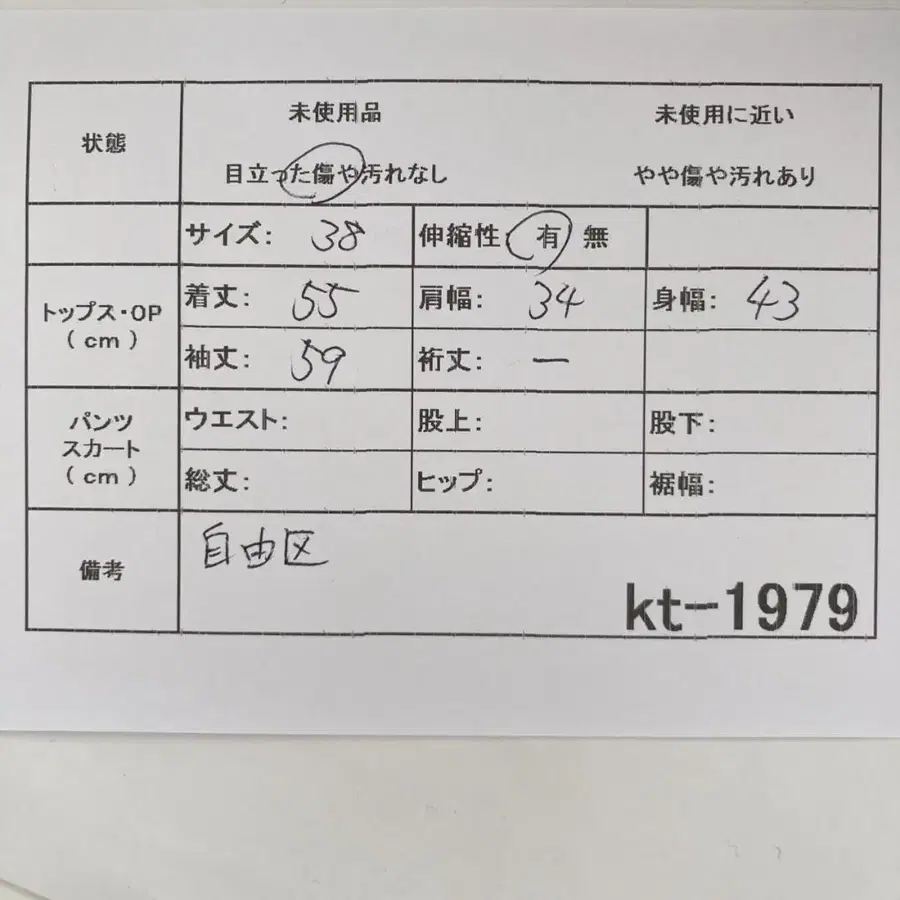 状態
未使用品 未使用に近い
目立った傷や汚れなし やや傷や汚れあり
サイズ: 38 伸縮性 有 無
トップス・OP
(cm)
着丈: 55 肩幅: 34 身幅: 43
袖丈: 59 裄丈: ー
パンツ
スカート
(cm)
ウエスト: 股上: 股下:
総丈: ヒップ: 裾幅:
備考
自由区
kt-1979